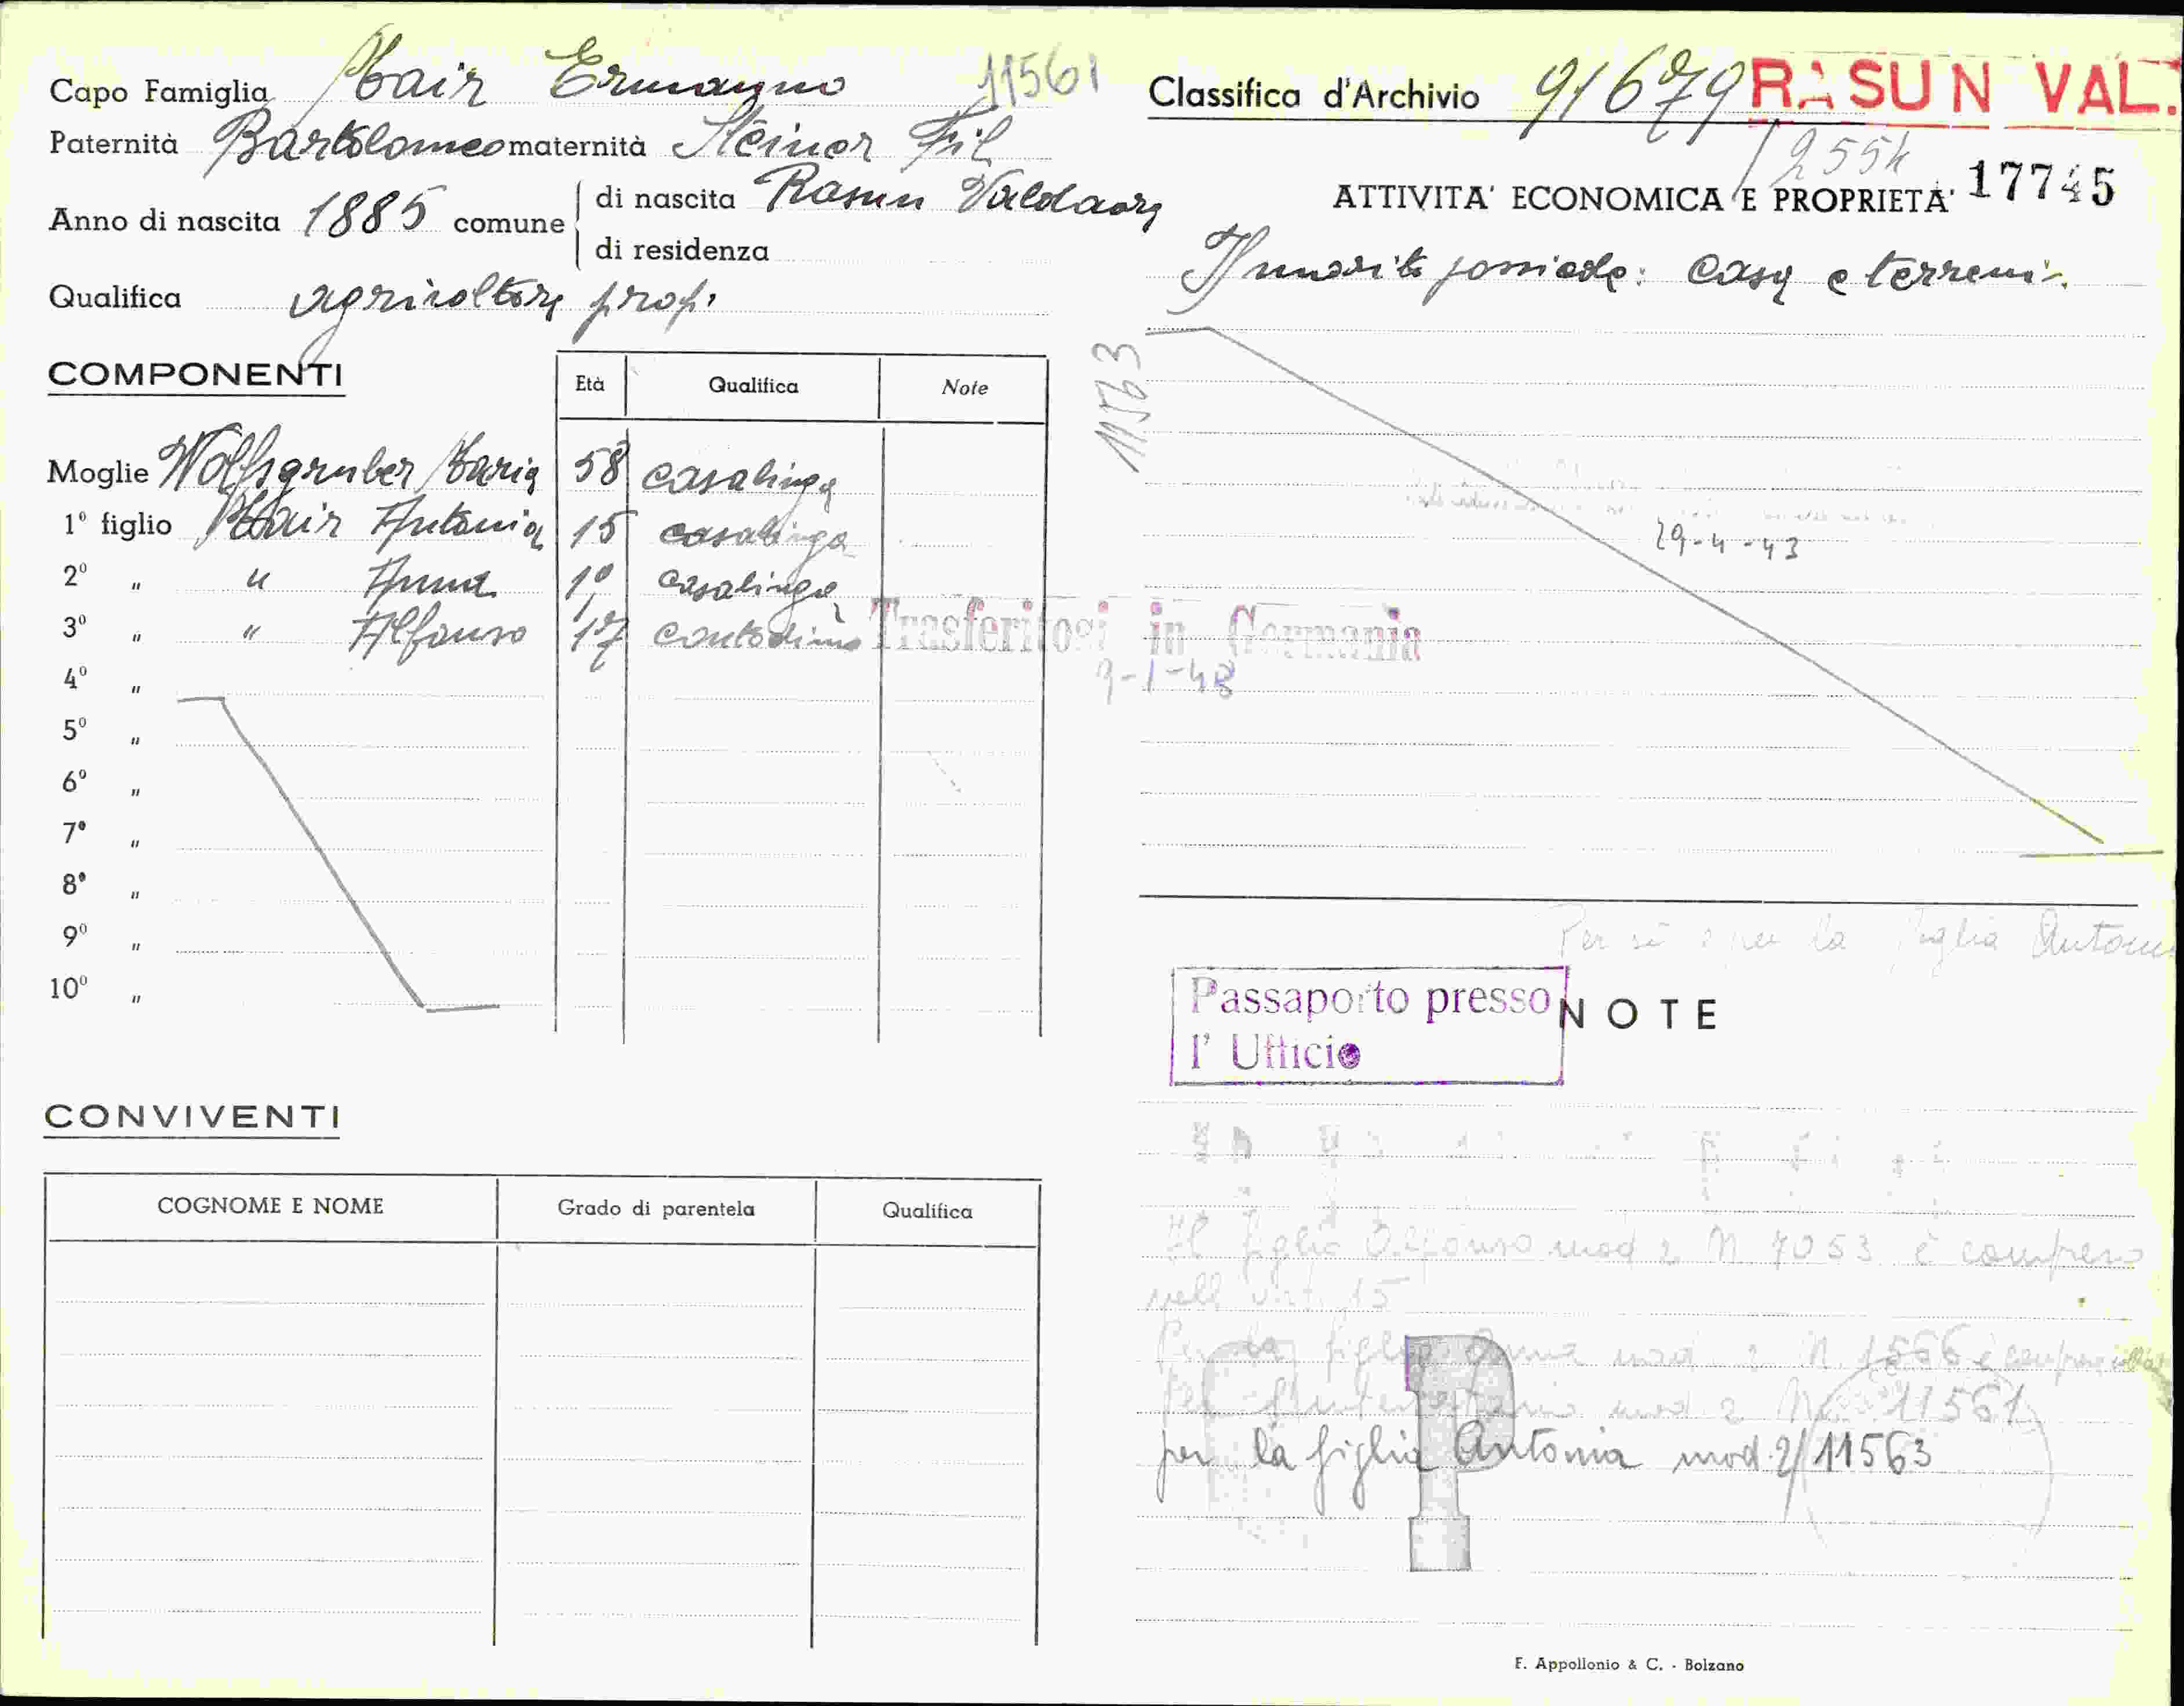 Capo Famiglia Mair Ermanno 11561
Paternità Bartolomeo maternità Steiner Fil
Anno di nascita 1885 comune di nascita Rasun Valdaora
di residenza
Qualifica agricoltore prop.
COMPONENTI
Età Qualifica Note
Moglie Wolfsgruber Maria 58 casalinga
1º figlio Mair Antonia 15 casalinga
2º " " Anna casalinga
3º " " Alfonso 17 contadino Trasferitosi in Germania
4º "
9-1-43
5º "
6º "
7º "
8º "
9º "
10º "
CONVIVENTI
COGNOME E NOME Grado di parentela Qualifica
Classifica d'Archivio 91679 RASUN VAL.
2554
ATTIVITA' ECONOMICA E PROPRIETA' 17745
Il marito possiede: casa e terreni.
11563
29-4-43
Per sè e per la figlia Antonia
Passaporto presso
l' Ufficio
NOTE
Il figlio Alfonso mod 2 N 7053 è compreso
nell art. 15
Per la figlia Anna mod 2 N. 1566 è
mod 2 N. 11561
per la figlia Antonia mod. 2/11563
P
F. Appollonio & C. - Bolzano